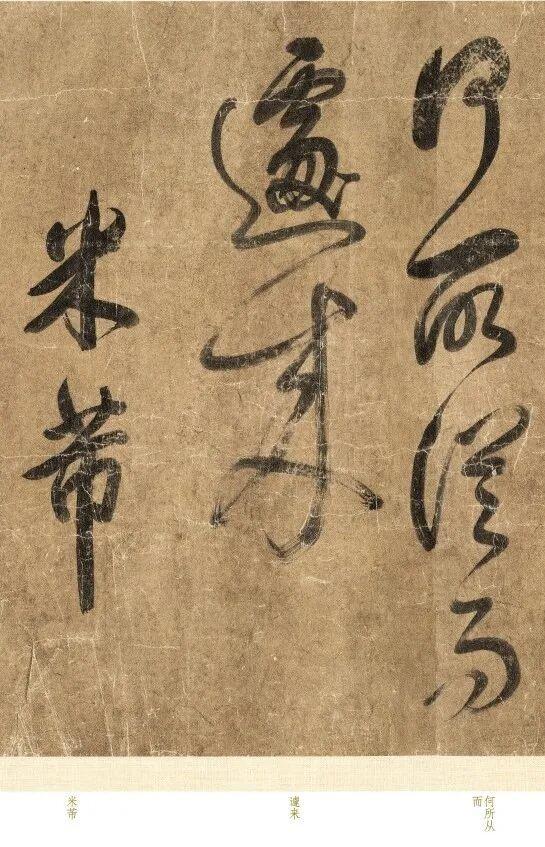 何所從而
遽來
米芾
何所从
而
遽来
米芾